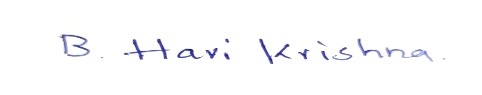 B. Hari Krishna.